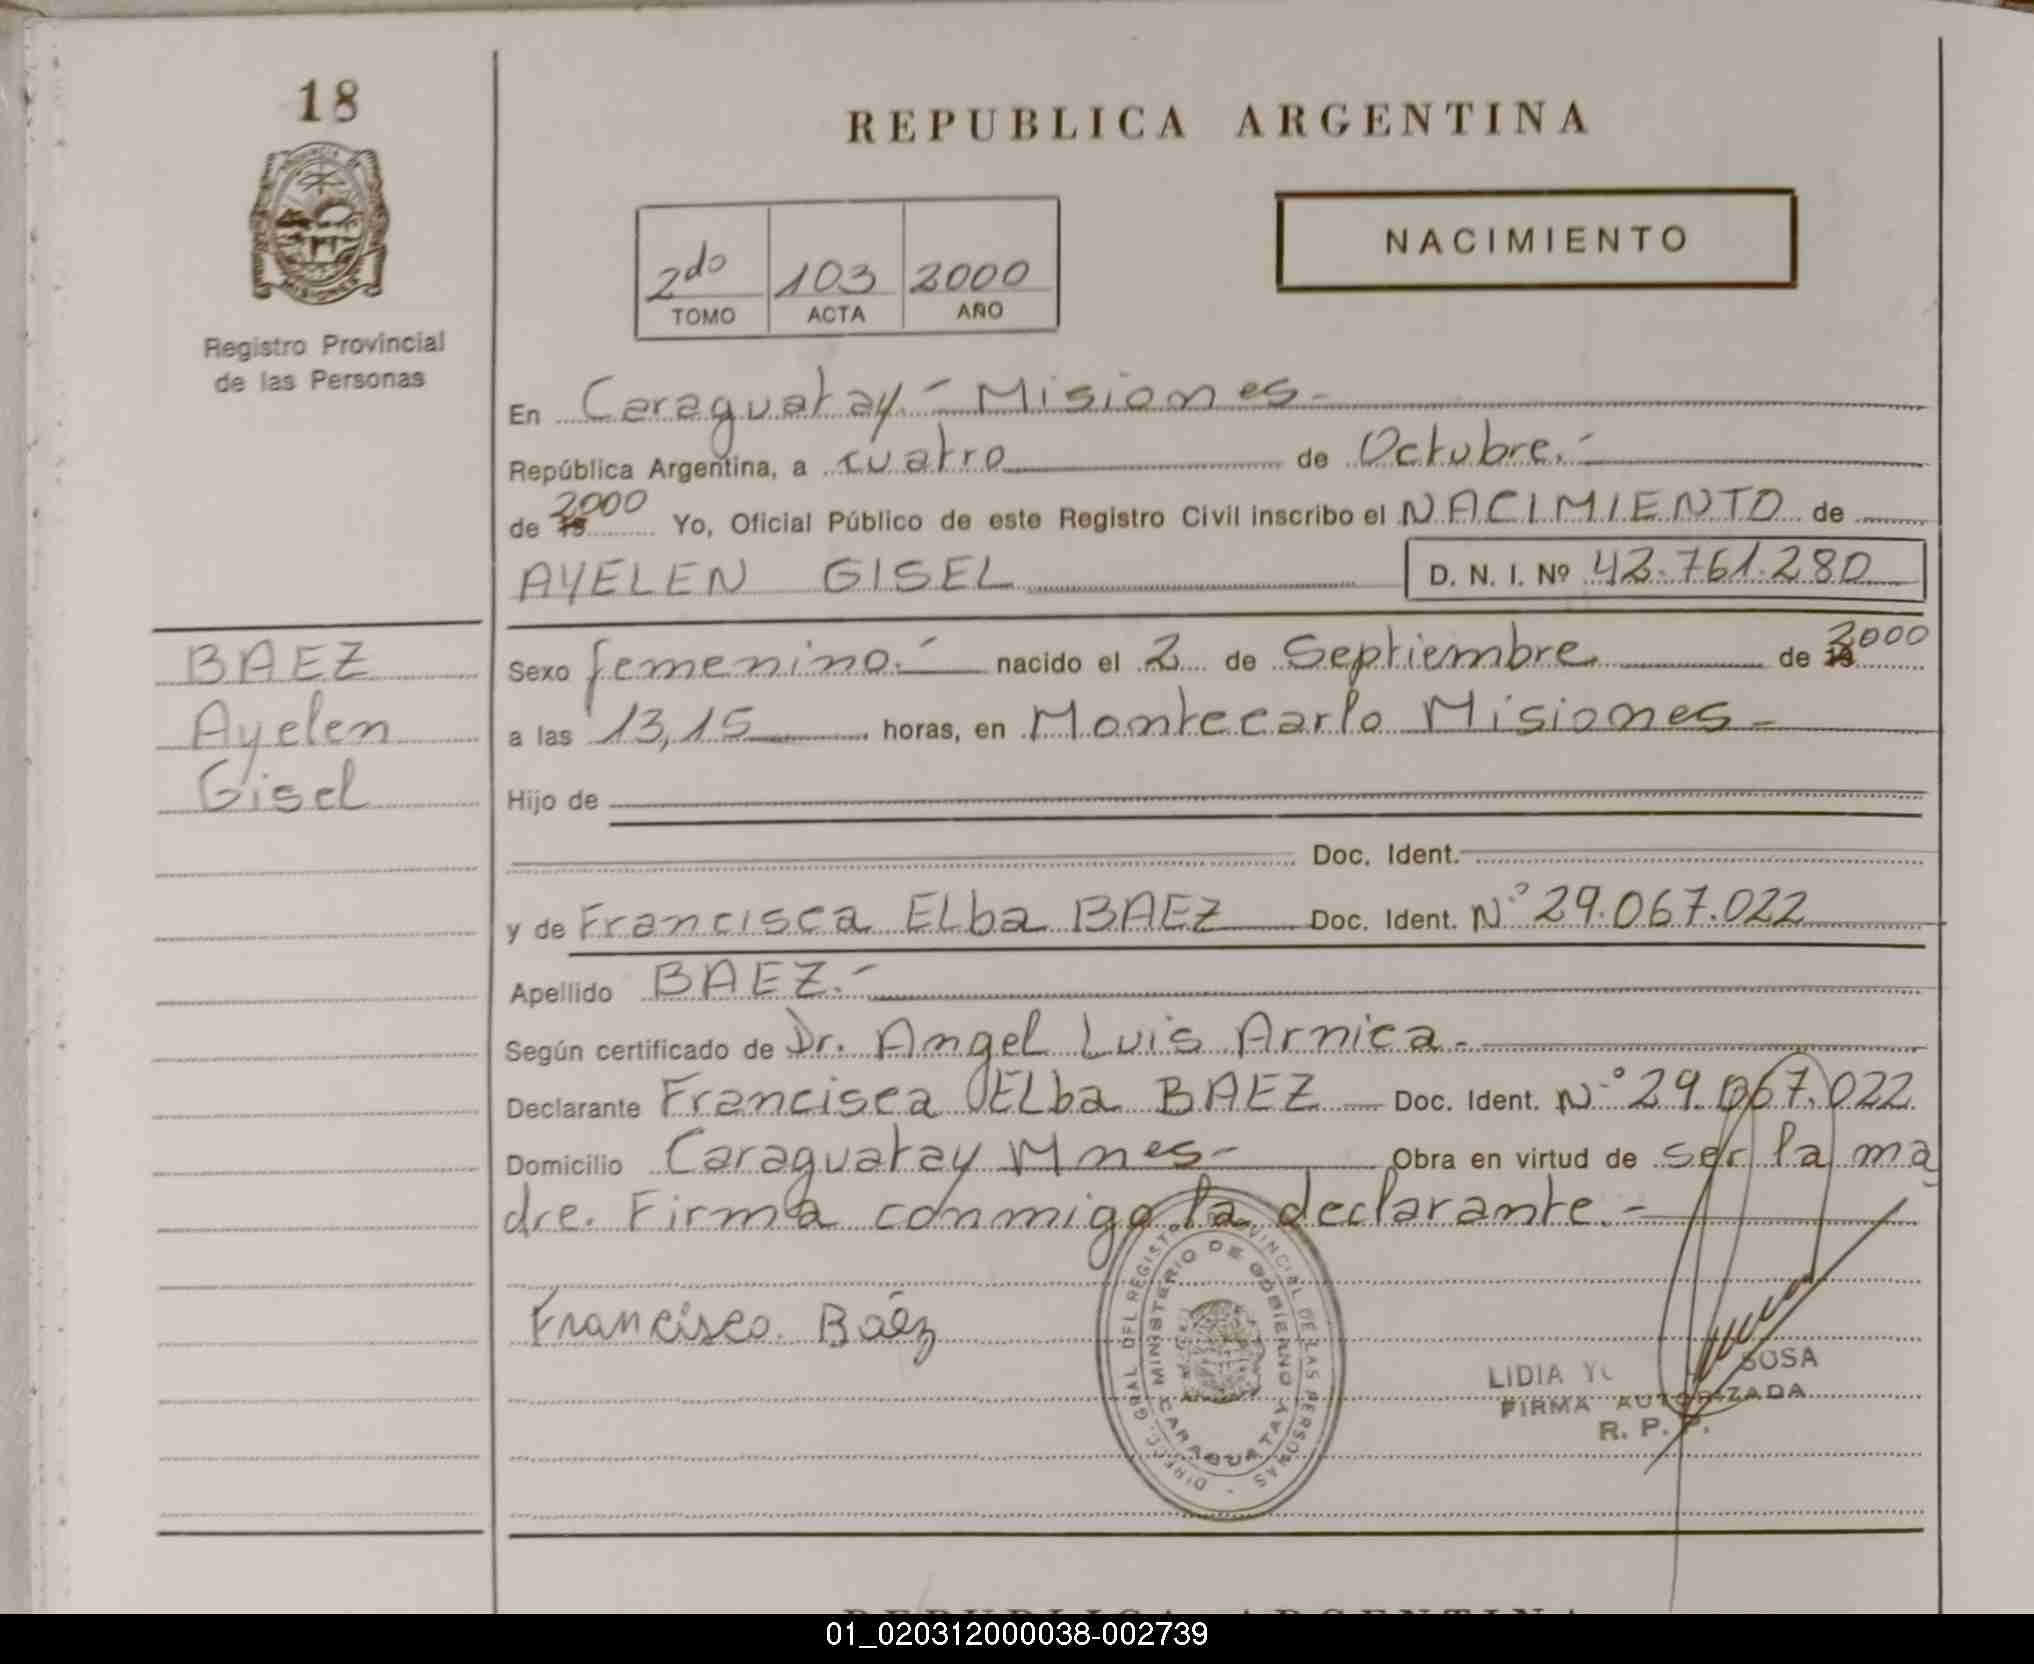 18
REPUBLICA ARGENTINA
NACIMIENTO
2do 103 2000
TOMO ACTA AÑO
Registro Provincial
de las Personas
En Caraguatay - Misiones -
República Argentina, a cuatro de Octubre.-
de 2000 Yo, Oficial Público de este Registro Civil inscribo el NACIMIENTO de
AYELEN GISEL D. N. I. Nº 42.761.280
BAEZ
Ayelen
Gisel
Sexo femenino.- nacido el 2 de Septiembre de 2000
a las 13,15 horas, en Montecarlo Misiones -
Hijo de
Doc. Ident.
y de Francisca ELba BAEZ Doc. Ident. N° 29.067.022
Apellido BAEZ.-
Según certificado de Dr. Angel Luis Arnica -
Declarante Francisca ELba BAEZ Doc. Ident. N° 29.067.022
Domicilio Caraguatay Mnes - Obra en virtud de ser la ma
dre. Firma conmigo la declarante.-
Francisca Baéz
DIRECC. GRAL DEL REGISTRO PROVINCIAL DE LAS PERSONAS -
MINISTERIO DE GOBIERNO
CARAGUATAY
LIDIA SOSA
FIRMA AUTORIZADA
R. P. P.
REPUBLICA ARGENTINA
01_020312000038-002739